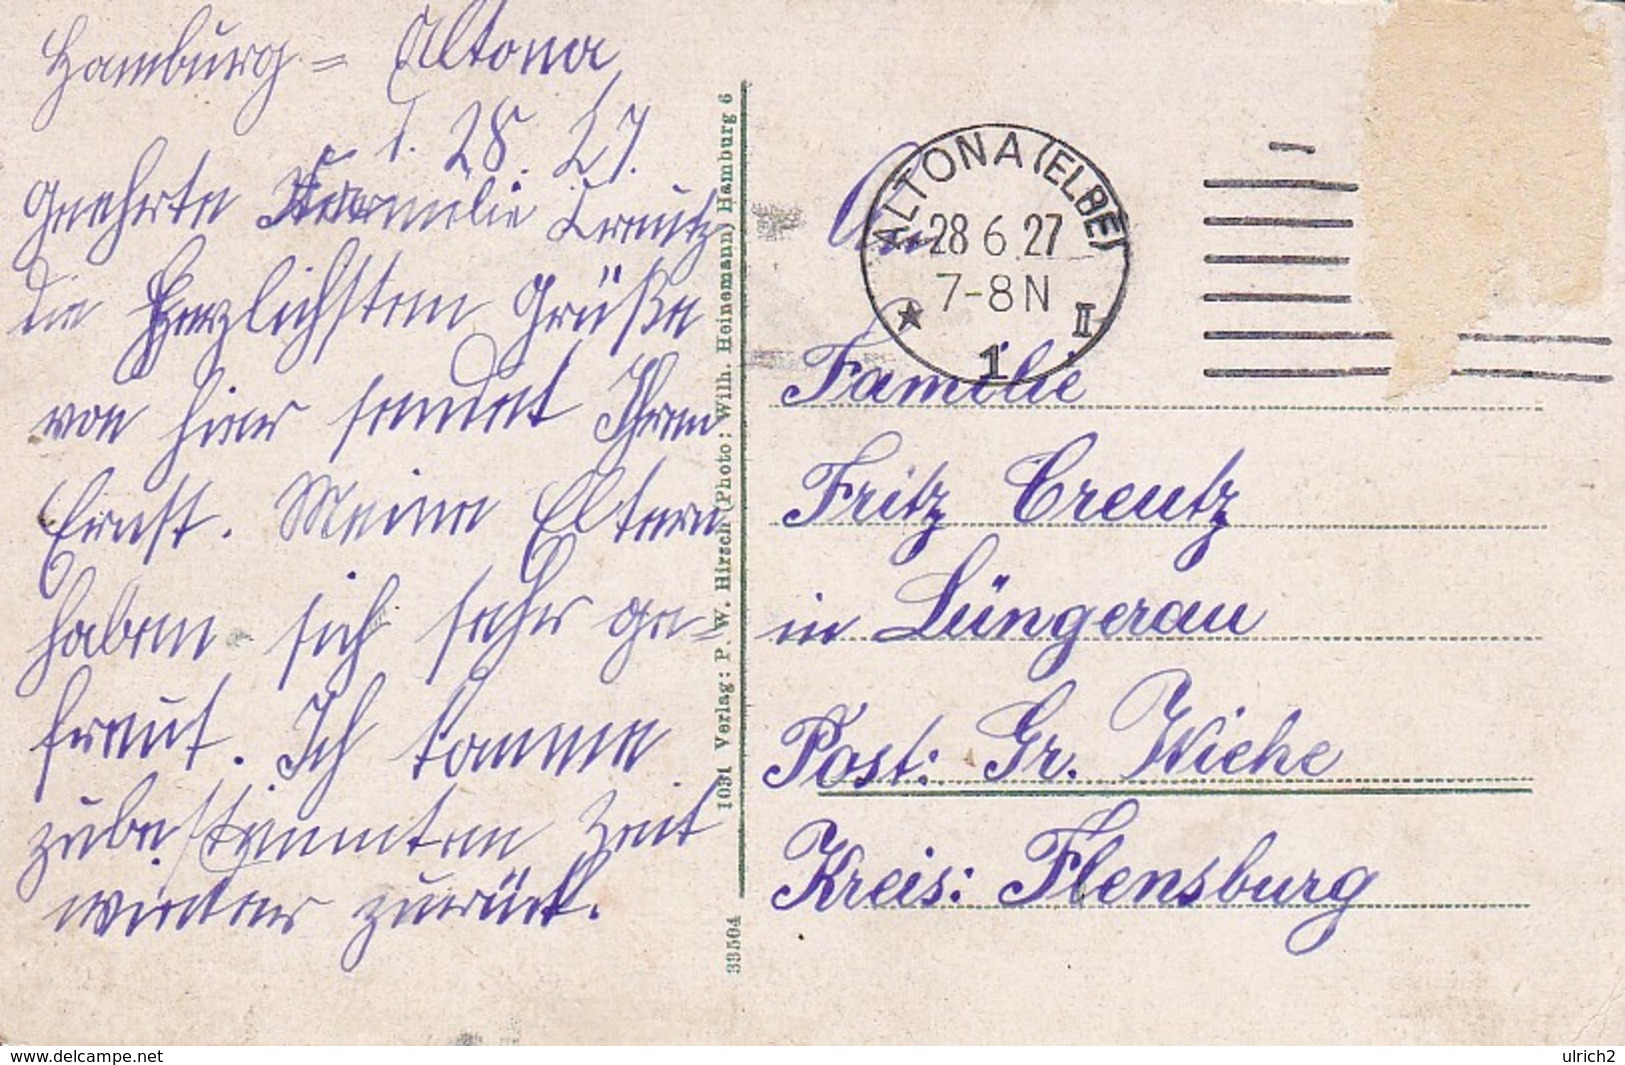 Hamburg = Altona
d. 28. 27.
Geehrte Familie Creutz
die Herzlichsten Grüße
von hier sendet Ihnen
Ernst. Meine Eltern
haben sich sehr ge-
freut. Ich komme
zubestimmten Zeit
wieder zurück.
1031 Verlag: P. W. Hirsch (Photo: Wilh. Heinemann) Hamburg 6
33504
ALTONA (ELBE)
28 6.27
7-8 N
★ 1 II
An
Familie
Fritz Creutz
in Lüngerau
Post: Gr. Wiehe
Kreis: Flensburg
www.delcampe.net
ulrich2